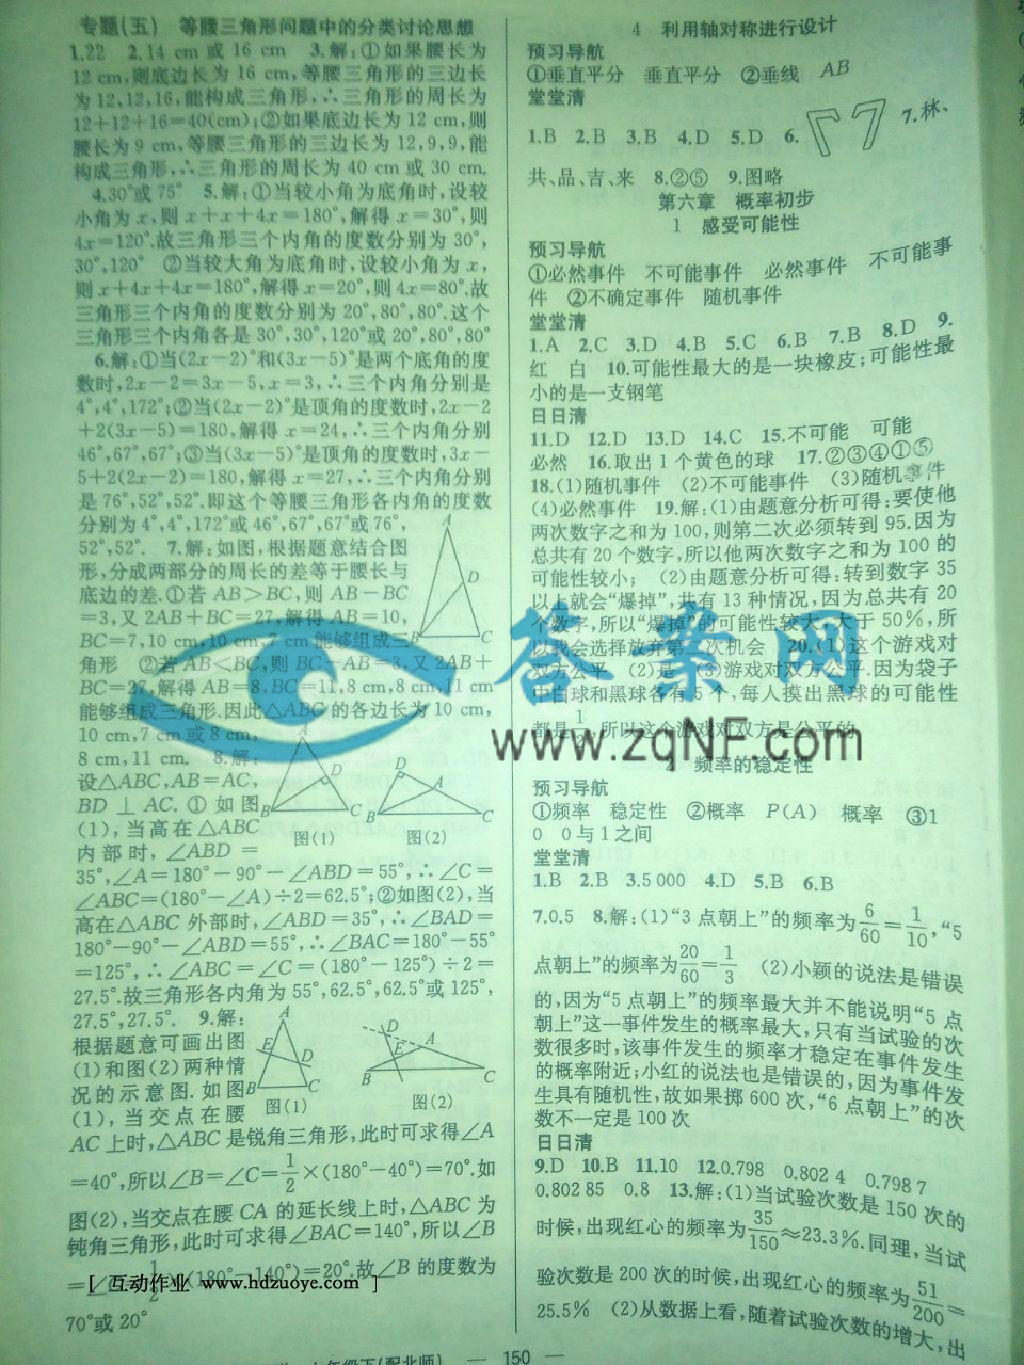 专题(五) 等腰三角形问题中的分类讨论思想
1.22 2.14 cm 或 16 cm 3.解:①如果腰长为
12 cm,则底边长为 16 cm,等腰三角形的三边长
为 12,12,16,能构成三角形,∴三角形的周长为
12+12+16=40(cm);②如果底边长为 12 cm,则
腰长为 9 cm,等腰三角形的三边长为 12,9,9,能
构成三角形,∴三角形的周长为 40 cm 或 30 cm.
4.30°或 75° 5.解:①当较小角为底角时,设较
小角为 x,则 x+x+4x=180°,解得 x=30°,则
4x=120°.故三角形三个内角的度数分别为 30°,
30°,120° ②当较大角为底角时,设较小角为 x,
则 x+4x+4x=180°,解得 x=20°,则 4x=80°.故
三角形三个内角的度数分别为 20°,80°,80°.这个
三角形三个内角各是 30°,30°,120°或 20°,80°,80°
6.解:①当(2x-2)°和(3x-5)°是两个底角的度
数时,2x-2=3x-5,x=3,∴三个内角分别是
4°,4°,172°;②当(2x-2)°是顶角的度数时,2x-2
+2(3x-5)=180,解得 x=24,∴三个内角分别
46°,67°,67°;③当(3x-5)°是顶角的度数时,3x-
5+2(2x-2)=180,解得 x=27,∴三个内角分别
是 76°,52°,52°.即这个等腰三角形各内角的度数
分别为 4°,4°,172°或 46°,67°,67°或 76°,
52°,52°. 7.解:如图,根据题意结合图
形,分成两部分的周长的差等于腰长与
底边的差.①若 AB>BC,则 AB-BC
=3,又 2AB+BC=27,解得 AB=10,
BC=7,10 cm,10 cm,7 cm 能够组成三
角形 ②若 AB<BC,则 BC-AB=3,又 2AB+
BC=27,解得 AB=8,BC=11,8 cm,8 cm,11 cm
能够组成三角形.因此△ABC 的各边长为 10 cm,
10 cm,7 cm 或 8 cm,
8 cm,11 cm. 8.解:
设△ABC,AB=AC,
BD⊥AC. ①如图
(1),当高在△ABC
内部时,∠ABD=
A D B C
A D B C 图(1)
D A B C 图(2)
35°,∠A=180°-90°-∠ABD=55°,∴∠C=
∠ABC=(180°-∠A)÷2=62.5°;②如图(2),当
高在△ABC 外部时,∠ABD=35°,∴∠BAD=
180°-90°-∠ABD=55°,∴∠BAC=180°-55°
=125°,∴∠ABC=∠C=(180°-125°)÷2=
27.5°.故三角形各内角为 55°,62.5°,62.5°或 125°,
27.5°,27.5°. 9.解:
根据题意可画出图
(1)和图(2)两种情
况的示意图. 如图
(1),当交点在腰
A E D B C 图(1)
D E A B C 图(2)
AC 上时,△ABC 是锐角三角形,此时可求得∠A
=40°,所以∠B=∠C=1/2×(180°-40°)=70°.如
图(2),当交点在腰 CA 的延长线上时,△ABC 为
钝角三角形,此时可求得∠BAC=140°,所以∠B
(180°-140°)=20°.故∠B 的度数为
70°或 20°
[ 互动作业 www.hdzuoye.com ]
4 利用轴对称进行设计
预习导航
①垂直平分 垂直平分 ②垂线 AB
堂堂清
1.B 2.B 3.B 4.D 5.D 6. 7.林、
共、品、吉、来 8.②⑤ 9.图略
第六章 概率初步
1 感受可能性
预习导航
①必然事件 不可能事件 必然事件 不可能事
件 ②不确定事件 随机事件
堂堂清
1.A 2.C 3.D 4.B 5.C 6.B 7.B 8.D 9.
红 白 10.可能性最大的是一块橡皮;可能性最
小的是一支钢笔
日日清
11.D 12.D 13.D 14.C 15.不可能 可能
必然 16.取出 1 个黄色的球 17.②③④①⑤
18.(1)随机事件 (2)不可能事件 (3)随机事件
(4)必然事件 19.解:(1)由题意分析可得:要使他
两次数字之和为 100,则第二次必须转到 95.因为
总共有 20 个数字,所以他两次数字之和为 100 的
可能性较小; (2)由题意分析可得:转到数字 35
以上就会“爆掉”,共有 13 种情况,因为总共有 20
个数字,所以“爆掉”的可能性较大,大于 50%,所
以我会选择放弃第二次机会 20.(1)这个游戏对
双方公平 (2)是 (3)游戏对双方公平.因为袋子
中白球和黑球各有 5 个,每人摸出黑球的可能性
都是1/2,所以这个游戏对双方是公平的
答案网
www.zqNF.com
2 频率的稳定性
预习导航
①频率 稳定性 ②概率 P(A) 概率 ③1
0 0 与 1 之间
堂堂清
1.B 2.B 3.5 000 4.D 5.B 6.B
7.0.5 8.解:(1)“3 点朝上”的频率为6/60=1/10,“5
点朝上”的频率为20/60=1/3 (2)小颖的说法是错误
的,因为“5 点朝上”的频率最大并不能说明“5 点
朝上”这一事件发生的概率最大,只有当试验的次
数很多时,该事件发生的频率才稳定在事件发生
的概率附近;小红的说法也是错误的,因为事件发
生具有随机性,故如果掷 600 次,“6 点朝上”的次
数不一定是 100 次
日日清
9.D 10.B 11.10 12.0.798 0.802 4 0.798 7
0.802 85 0.8 13.解:(1)当试验次数是 150 次的
时候,出现红心的频率为35/150≈23.3%.同理,当试
验次数是 200 次的时候,出现红心的频率为51/200=
25.5% (2)从数据上看,随着试验次数的增大,出
— 150 —